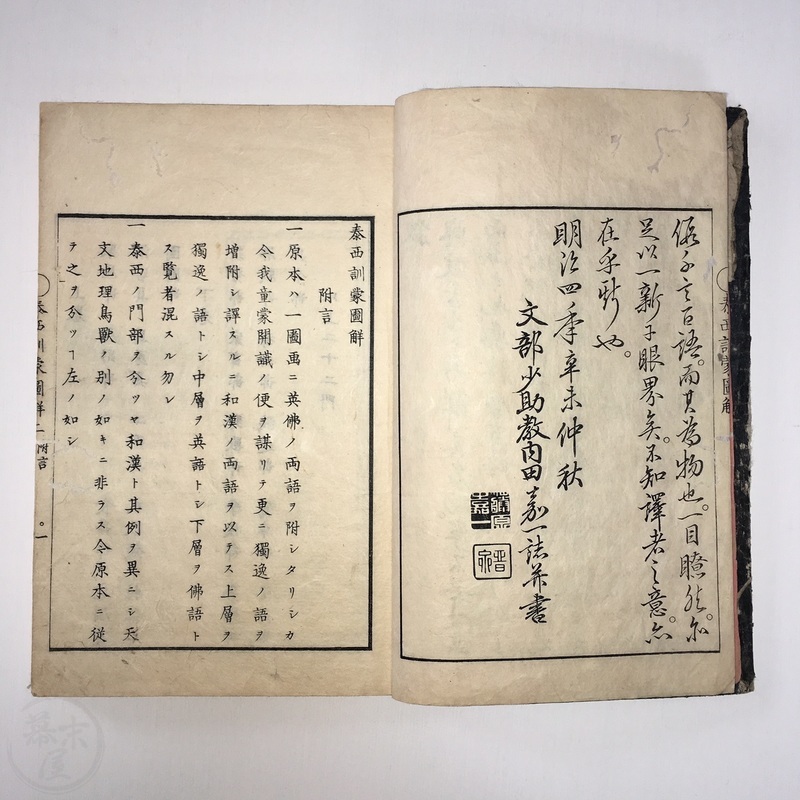 假千言百語。而其為物也。一目瞭然。
足以一新子眼界矣。不知譯者之意。亦
在乎斯也。
明治四年辛未仲秋
文部少助教内田嘉一誌并書
藤原嘉一
泰西訓蒙圖解
泰西訓蒙圖解
附言
一原本ハ一圖画ニ英佛ノ両語ヲ附シタリシカ
今我童蒙開識ノ便ヲ謀リテ更ニ獨逸ノ語ヲ
増附シ譯スルニ和漢ノ両語ヲ以テス上層ヲ
獨逸ノ語トシ中層ヲ英語トシ下層ヲ佛語ト
ス覽者混スル勿レ
一泰西ノ門部ヲ分ツヤ和漢ト其例ヲ異ニシ天
文地理鳥獸ノ別ノ如キニ非ラス今原本ニ従
ヲ之ヲ分ツヿ左ノ如シ
泰西訓蒙圖解上 附言 一
幕末屋